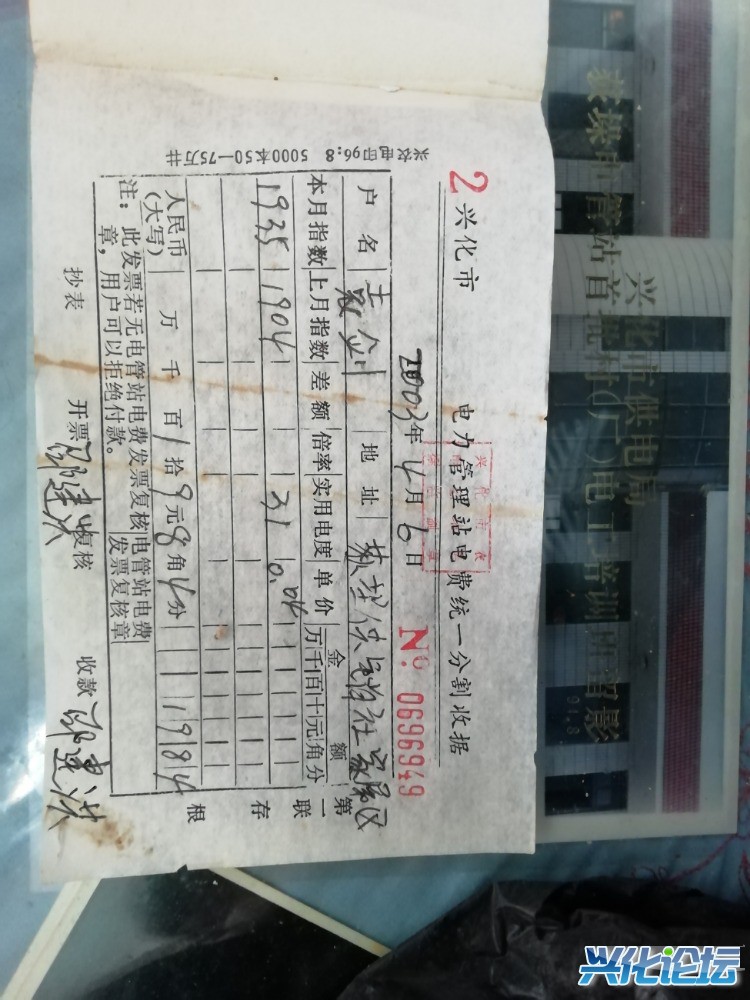 2兴化市 电力管理站电费统一分割收据
2003年4月6日 № 0696949
户名 剑 地址 供销社家属区
本月指数 上月指数 差额 倍率 实用电度 单价 金额 万千百十元角分
1935 1904 31 0.64
人民币(大写) 万 千 百 1拾9元8角4分 1984
注:此发票若无电管站电费发票复核章,用户可以拒绝付款。
电管站电费发票复核章
抄表 开票 复核 收款
第一联 存根
兴农电印96:8 5000本50—75万井
兴化市供电局
管站首批村(厂)电工培训班留影
兴化论坛